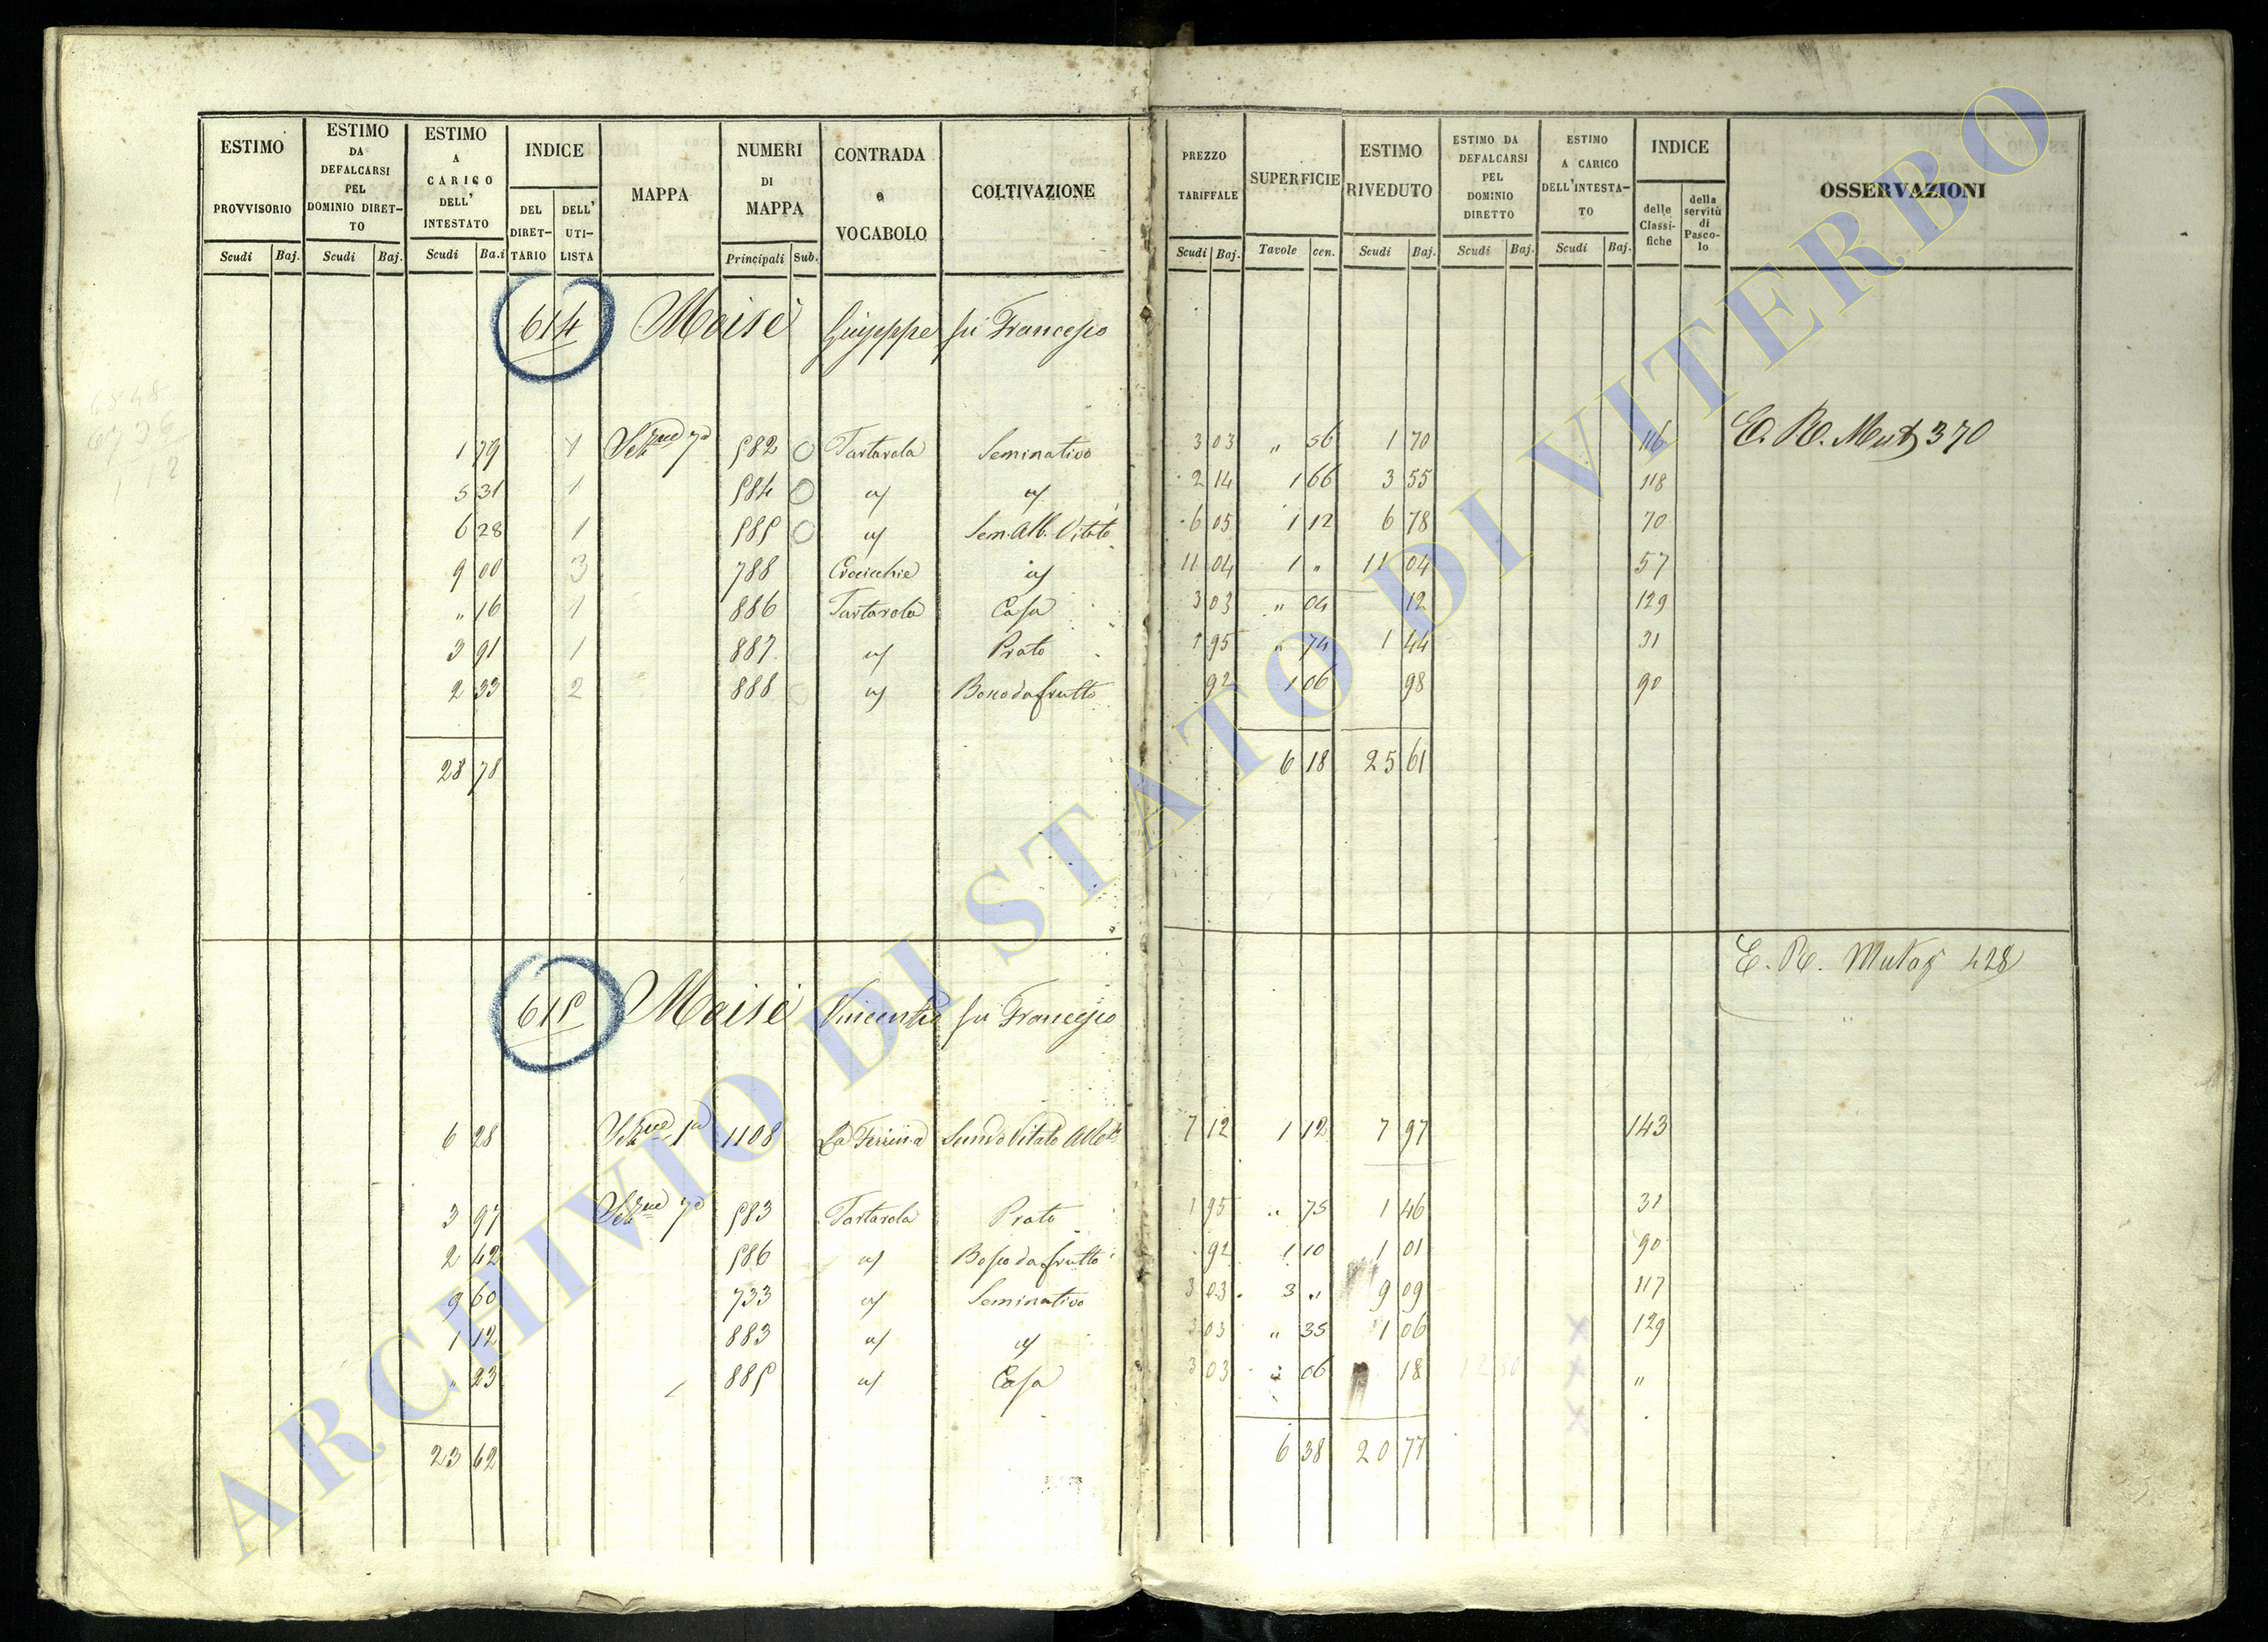 ESTIMO PROVVISORIO | ESTIMO DA DEFALCARSI PEL DOMINIO DIRETTO | ESTIMO A CARICO DELL' INTESTATO | INDICE | MAPPA | NUMERI DI MAPPA | CONTRADA o VOCABOLO | COLTIVAZIONE | PREZZO TARIFFALE | SUPERFICIE | ESTIMO RIVEDUTO | ESTIMO DA DEFALCARSI PEL DOMINIO DIRETTO | ESTIMO A CARICO DELL'INTESTATO | INDICE | OSSERVAZIONI
Scudi | Baj. | Scudi | Baj. | Scudi | Ba.i | DEL DIRETTARIO | DELL' UTILISTA | Principali | Sub. | Scudi | Baj. | Tavole | cen. | Scudi | Baj. | Scudi | Baj. | Scudi | Baj. | delle Classifiche | della servitù di Pascolo
614 Moisè Giuseppe fu Francesco
1 79 | 582 | Tartarola | Seminativo | 3 03 | „ 56 | 1 70 | 116 | 370
5 31 | 1 | 584 | 2 14 | 1 66 | 3 55 | 118
6 28 | 1 | 585 | Sem. Alb. Vitato | 6 05 | 1 12 | 6 78 | 70
9 00 | 3 | 788 | Crocicchie | 11 04 | 1 „ | 11 04 | 57
„ 16 | 1 | 886 | Tartarola | Casa | 3 03 | „ 04 | 12 | 129
3 91 | 1 | 887 | Prato | 1 95 | „ 74 | 1 44 | 31
2 33 | 2 | 888 | Bosco da frutto | 92 | 1 06 | 98 | 90
28 78 | 6 18 | 25 61
428
615 Moisè Vincenzo fu Francesco
6 28 | 1108 | 7 12 | 1 12 | 7 97 | 143
3 97 | 583 | Tartarola | Prato | 1 95 | „ 75 | 1 46 | 31
2 42 | 586 | Bosco da frutto | 92 | 1 10 | 1 01 | 90
9 60 | 733 | Seminativo | 3 03 | 3 „ | 9 09 | 117
1 12 | 883 | 3 03 | „ 35 | 1 06 | 129
„ 23 | 885 | Casa | 3 03 | „ 06 | 18 | „
23 62 | 6 38 | 20 77
ARCHIVIO DI STATO DI VITERBO